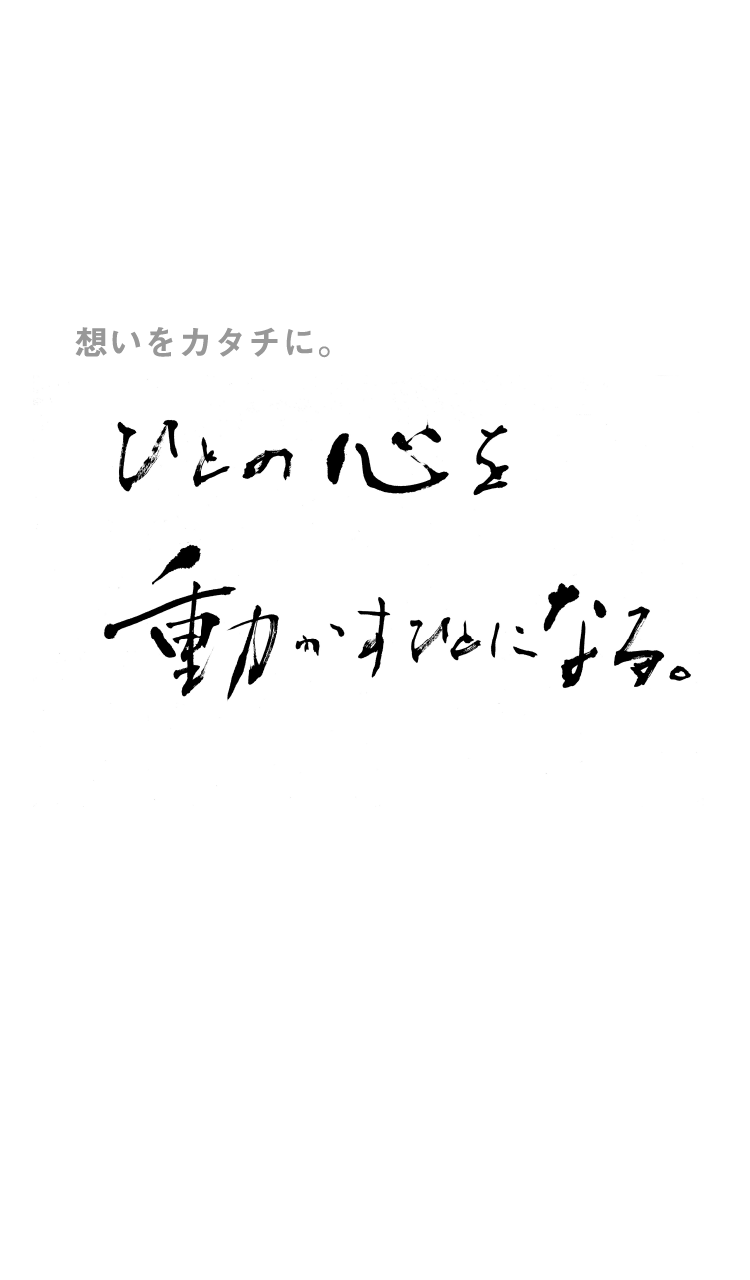 想いをカタチに。
ひとの心を
動かすひとになる。